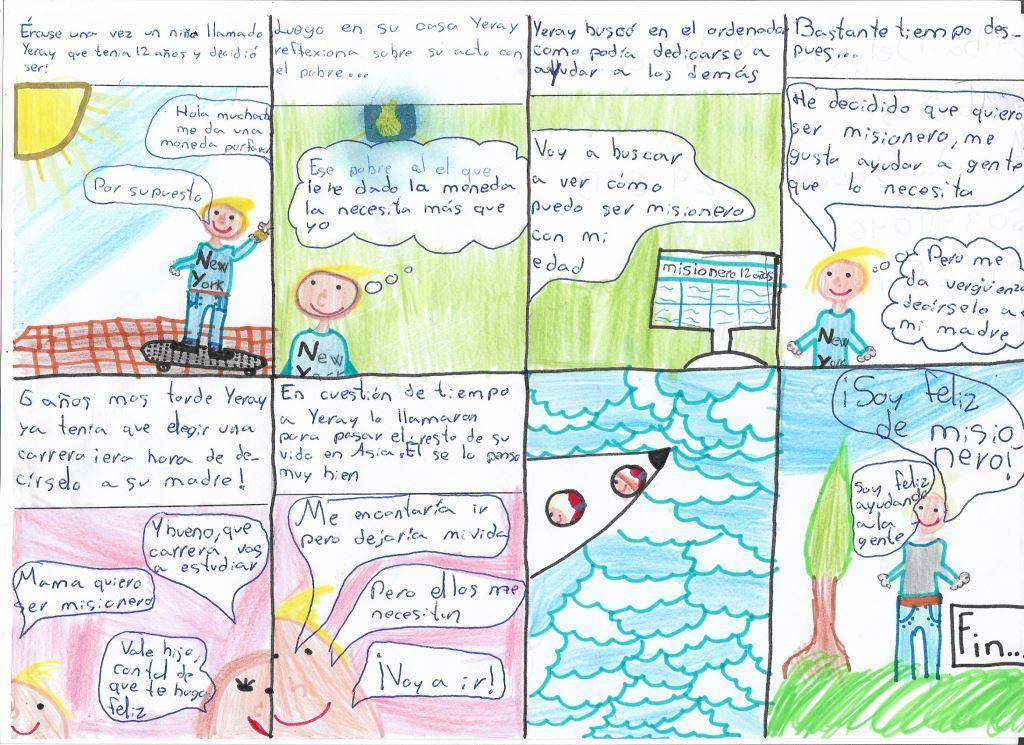 Érase una vez un niño llamado
Yeray que tenia 12 años y decidió
ser:
Hola muchacho
me da una
moneda porfavor
Por supuesto
New
York
Luego en su casa Yeray
reflexiona sobre su acto con
el pobre...
Ese pobre al el que
le he dado la moneda
la necesita más que
yo
New
York
Yeray buscó en el ordenador
como podía dedicarse a
ayudar a los demás
Voy a buscar
a ver cómo
puedo ser misionero
con mi
edad
misionero 12 años
Bastante tiempo des-
pues...
He decidido que quiero
ser misionero, me
gusta ayudar a gente
que lo necesita
Pero me
da vergüenza
decírselo a
mi madre
New
Y
6 años mas tarde Yeray
ya tenia que elegir una
carrera ¡era hora de de-
círselo a su madre!
Y bueno, que
carrera vas
a estudiar
Mama quiero
ser misionero
Vale hijo,
con tal de
que te haga
feliz
En cuestión de tiempo
a Yeray lo llamaron
para pasar el resto de su
vida en Asia. El se lo penso
muy bien
Me encantaría ir
pero dejaría mi vida
Pero ellos me
necesitan
¡Voy a ir!
¡Soy feliz
de misio
nero!
Soy feliz
ayudando
a la
gente
Fin...